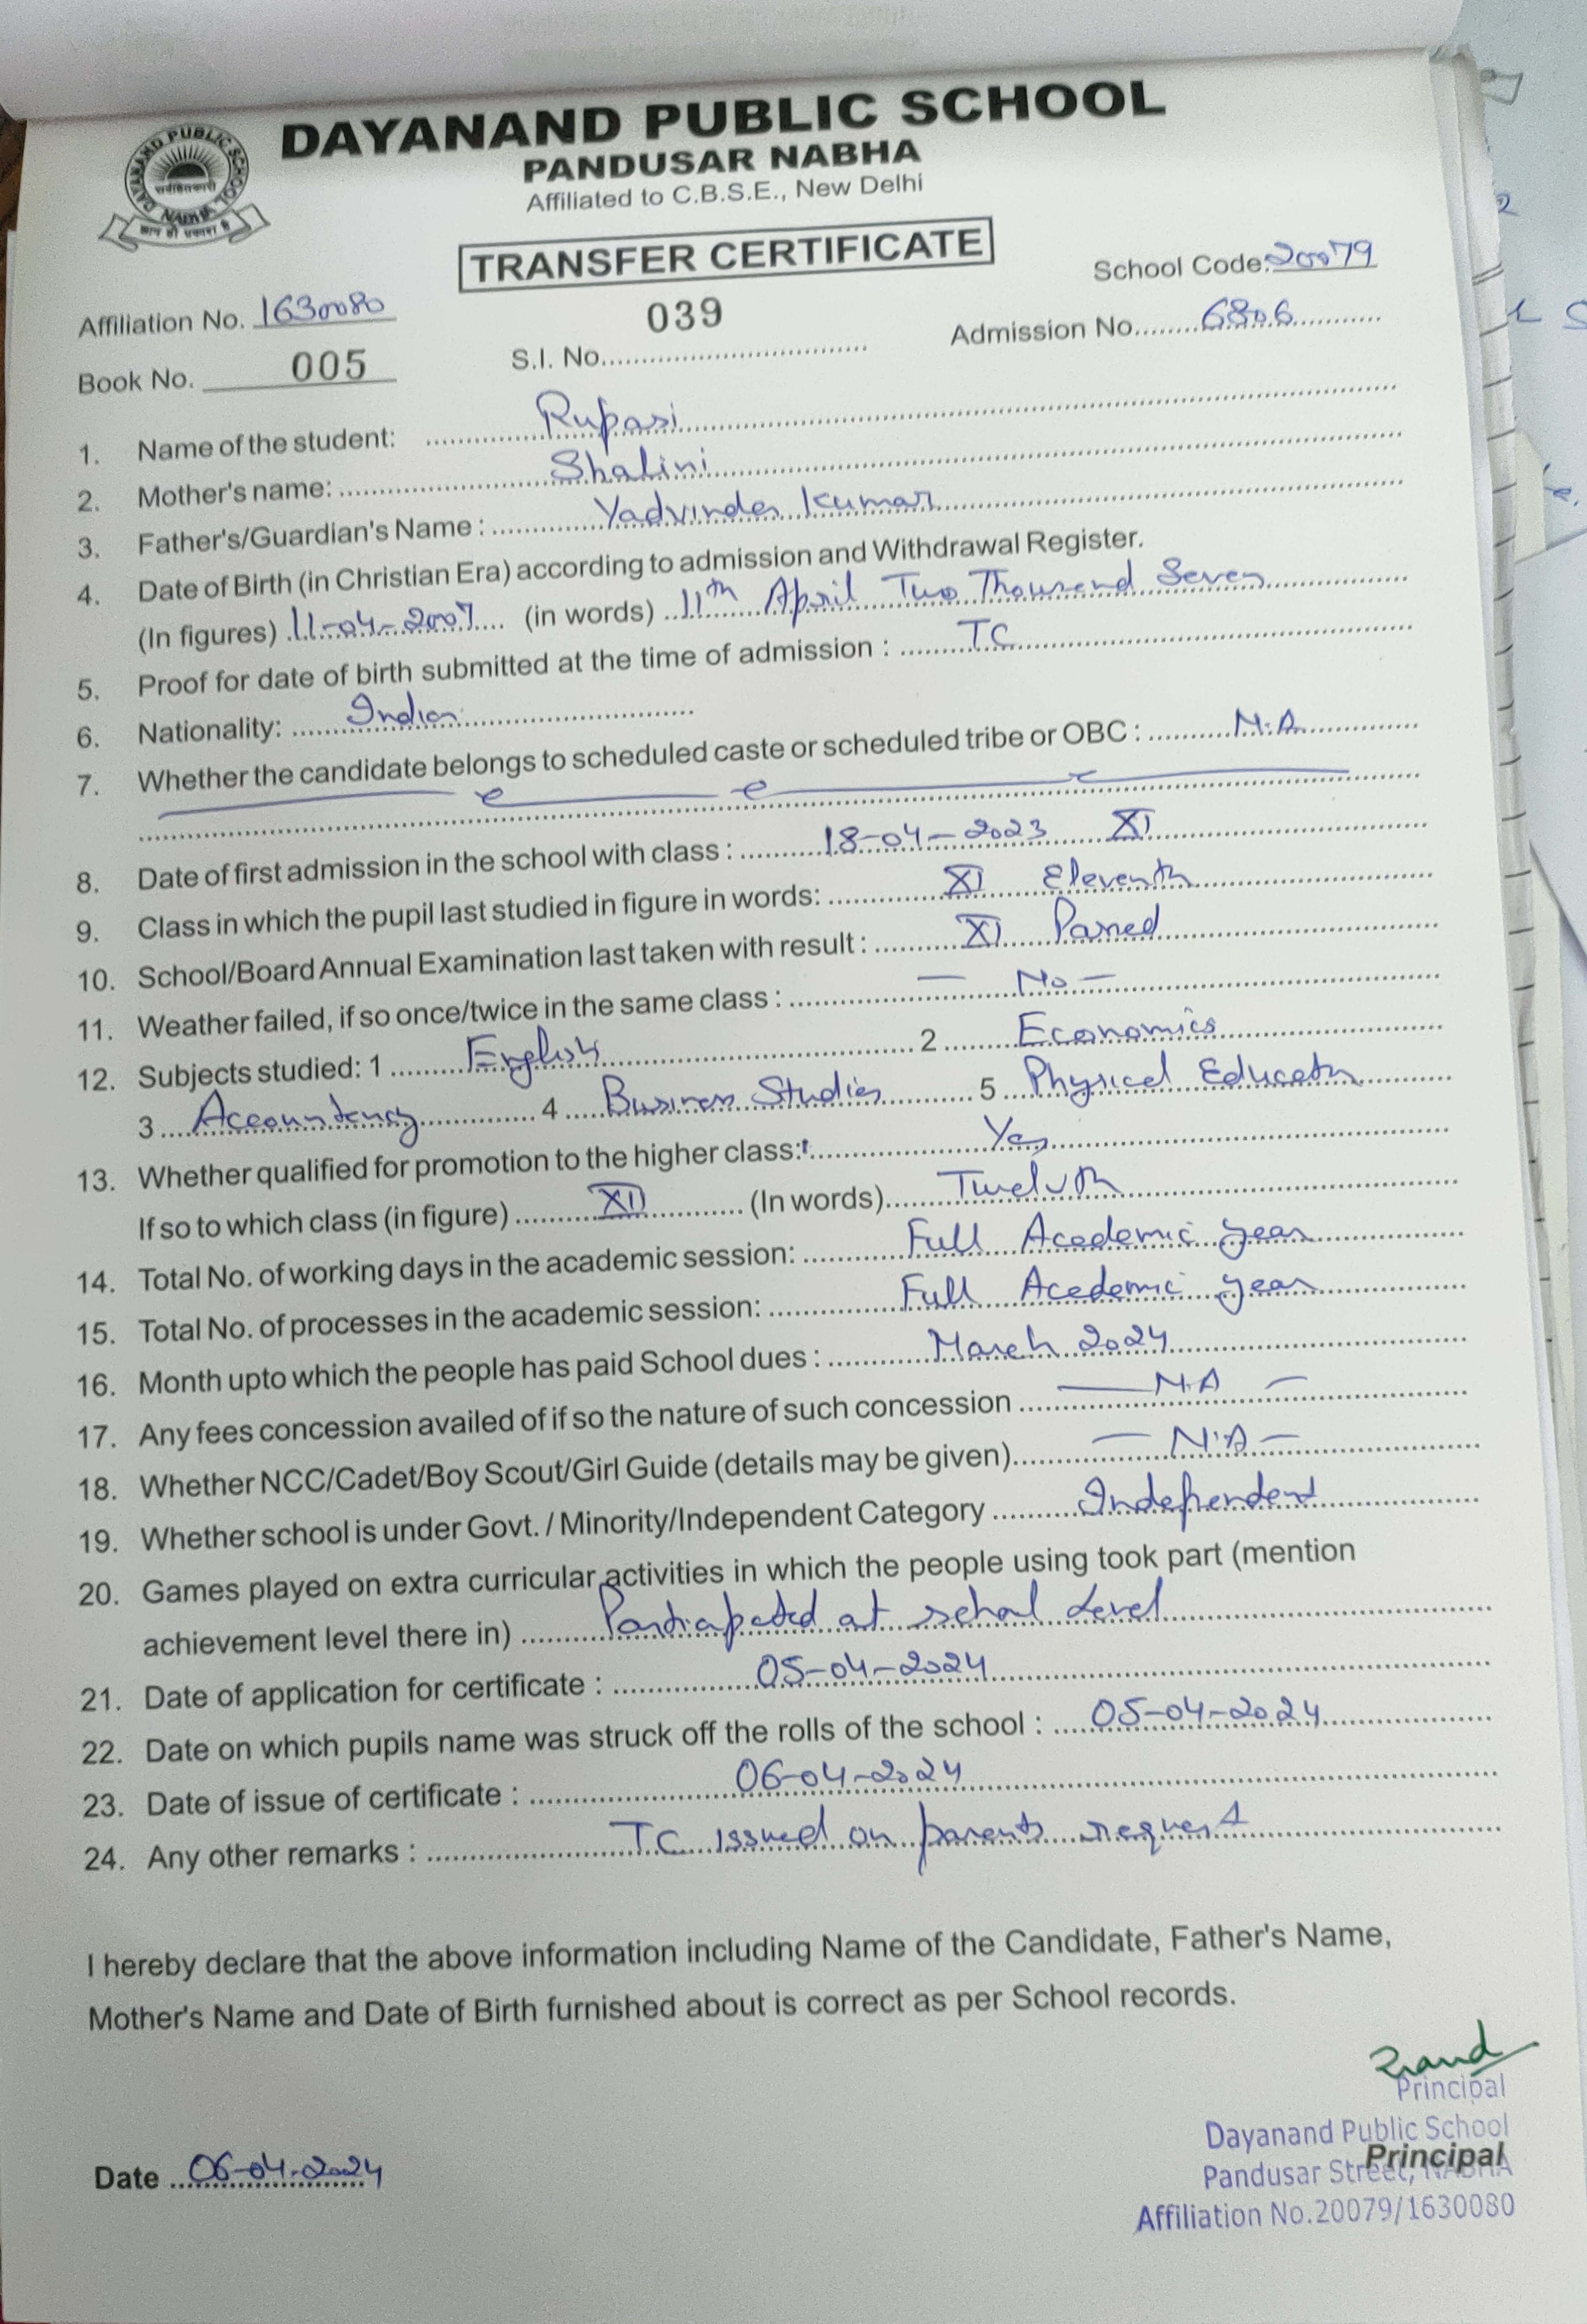 DAYANAND PUBLIC SCHOOL
PANDUSAR NABHA
Affiliated to C.B.S.E., New Delhi
DAYANAND PUBLIC SCHOOL
NABHA
TRANSFER CERTIFICATE
School Code. 20079
Affiliation No. 1630080
039
Admission No. 6806
Book No. 005
S.I. No.
1. Name of the student: Rupasi
2. Mother's name: Shalini
3. Father's/Guardian's Name : Yadvinder Kumar
4. Date of Birth (in Christian Era) according to admission and Withdrawal Register.
(In figures) 11-04-2007 (in words) 11th April Two Thousand Seven
5. Proof for date of birth submitted at the time of admission : TC
6. Nationality: Indian
7. Whether the candidate belongs to scheduled caste or scheduled tribe or OBC : N.A
8. Date of first admission in the school with class : 18-04-2023 XI
9. Class in which the pupil last studied in figure in words: XI Eleventh
10. School/Board Annual Examination last taken with result : XI Passed
11. Weather failed, if so once/twice in the same class : — No —
12. Subjects studied: 1 English 2 Economics
3 Accountancy 4 Business Studies 5 Physical Education
13. Whether qualified for promotion to the higher class: Yes
If so to which class (in figure) XII (In words) Twelvth
14. Total No. of working days in the academic session: Full Academic year
15. Total No. of processes in the academic session: Full Acedemic year
16. Month upto which the people has paid School dues : March 2024
17. Any fees concession availed of if so the nature of such concession — N.A —
18. Whether NCC/Cadet/Boy Scout/Girl Guide (details may be given) — N.A —
19. Whether school is under Govt. / Minority/Independent Category Independent
20. Games played on extra curricular activities in which the people using took part (mention
achievement level there in) Participated at school level
21. Date of application for certificate : 05-04-2024
22. Date on which pupils name was struck off the rolls of the school : 05-04-2024
23. Date of issue of certificate : 06-04-2024
24. Any other remarks : TC issued on parents request
I hereby declare that the above information including Name of the Candidate, Father's Name,
Mother's Name and Date of Birth furnished about is correct as per School records.
Principal
Dayanand Public School
Principal
Pandusar Street, NABHA
Date 06-04-2024
Affiliation No.20079/1630080